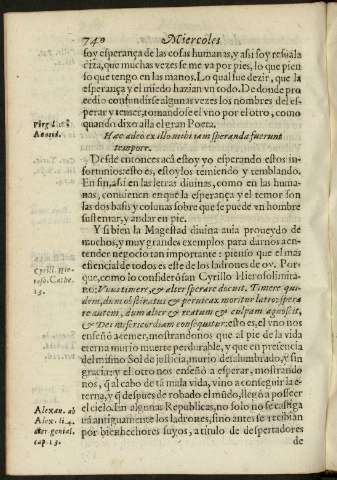 740 Miercoles
soy esperança de las cosas humanas, y assi soy resvala
diza, que muchas vezes se me va por pies, lo que pien
so que tengo en las manos. Lo qual fue dezir, que la
esperança y el miedo hazian vn todo. De donde pro
cedio confundirse algunas vezes los nombres del es-
perar y temer, tomandose el vno por el otro, como
quando dixo alla el gran Poeta.
Virg. lib. 
Aeneid.
Hac adeo ex illo mihi iam speranda fuerunt
tempore.
Desde entonces acá estoy yo esperando estos in-
fortunios: esto es, estoylos temiendo y temblando.
En fin, assi en las letras diuinas, como en las huma-
nas, conuienen en que la esperança y el temor son
las dos basis y colunas sobre que se puede vn hombre
sustentar, y andar en pie.
Y si bien la Magestad diuina auia proueydo de
muchos, y muy grandes exemplos para darnos a en-
tender negocio tan importante: pienso que el mas
essencial de todos es este de los ladrones de oy. Por-
que, como lo considerò san Cyrillo Hierosolimita-
Cyrill. Hie-
roso. Cathe.
13.
no: Vnus timere, & alter sperare docuit. Timere qui-
dem, dum obstinatus & peruicax moritur latro: spera
re autem, dum alter & reatum & culpam agnoscit,
& Dei misericordiam consequitur: esto es, el vno nos
enseñò a temer, mostrandonos que al pie de la vida
eterna murio muerte perdurable, y que en presencia
del mismo Sol de justicia, murio deslumbrado, y sin
gracia: y el otro nos enseñò a esperar, mostrando
nos, q̃ al cabo de tã mala vida, vino a conseguir la e-
terna, y q̃ despues de robado el mũdo, llegó a posseer
el cielo. En algunas Republicas, no solo no se castiga
Alexan. ab
Alex. li. 4.
dier. genial.
cap. 13.
uã antiguamente los ladrones, sino antes se recibian
por bienhechores suyos, a titulo de despertadores
de